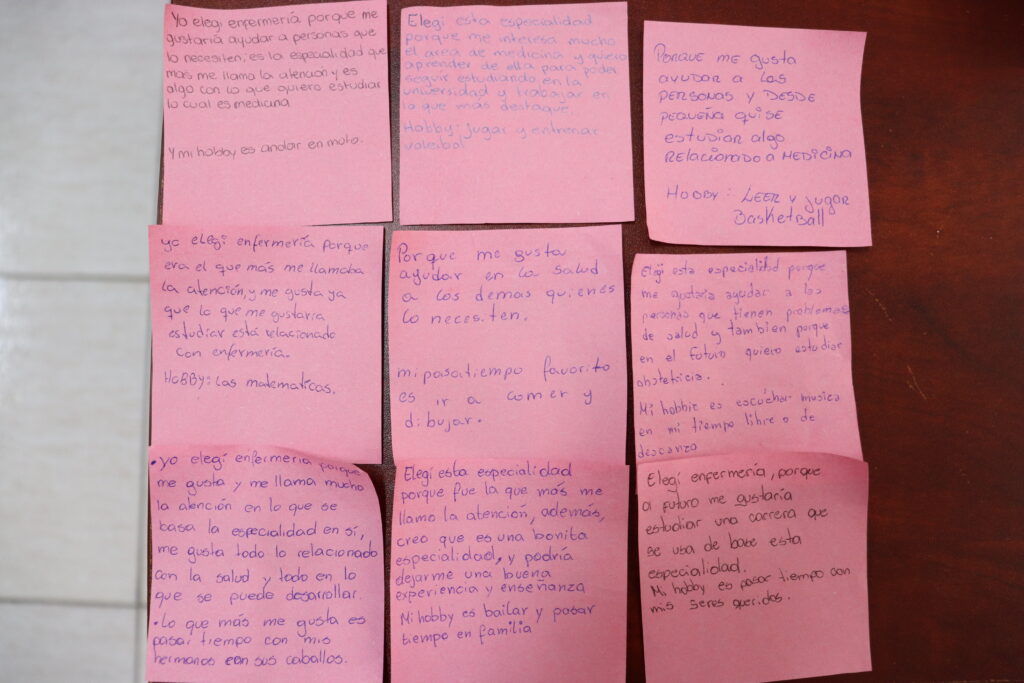 Yo elegi enfermería porque me
gustaría ayudar a personas que
lo necesiten, es la especialidad que
mas me llamo la atencion y es
algo con lo que quiero estudiar
lo cual es medicina
Y mi hobby es andar en moto.
Elegi esta especialidad
porque me interesa mucho
el area de medicina y quiero
aprender de ella para poder
seguir estudiando en la
universidad y trabajar en
lo que más destaque.
Hobby: Jugar y entrenar
voleibol
PORQUE ME gusta
AYUDAR A LAS
PERSONAS Y DESDE
PEQUEÑA QUISE
ESTUDIAR Algo
RELACIONADO A MEDICINA
HOBBY: LEER Y jugar
Basketball
yo elegi enfermería porque
era el que más me llamaba
la atención, y me gusta ya
que lo que me gustaría
estudiar está relacionado
con enfermería.
HOBBY: Las matematicas.
Porque me gusta
ayudar en la salud
a los demas quienes
lo necesiten.
mi pasatiempo favorito
es ir a comer y
dibujar.
Elegi esta especialidad porque
me gustaria ayudar a las
personas que tienen problemas
de salud y tambien porque
en el futuro quiero estudiar
obstetricia.
Mi hobbie es escuchar musica
en mi tiempo libre o de
descanzo
• yo elegí enfermería porque
me gusta y me llama mucho
la atención en lo que se
basa la especialidad en sí,
me gusta todo lo relacionado
con la salud y todo en lo
que se puede desarrollar.
• Lo que más me gusta es
pasar tiempo con mis
hermanos con sus caballos.
Elegí esta especialidad
porque fue la que más me
llamo la atención, además,
creo que es una bonita
especialidad, y podría
dejarme una buena
experiencia y enseñanza
Mi hobby es bailar y pasar
tiempo en familia
Elegi enfermería, porque
a futuro me gustaría
estudiar una carrera que
se usa de base esta
especialidad.
Mi hobby es pasar tiempo con
mis seres queridos.